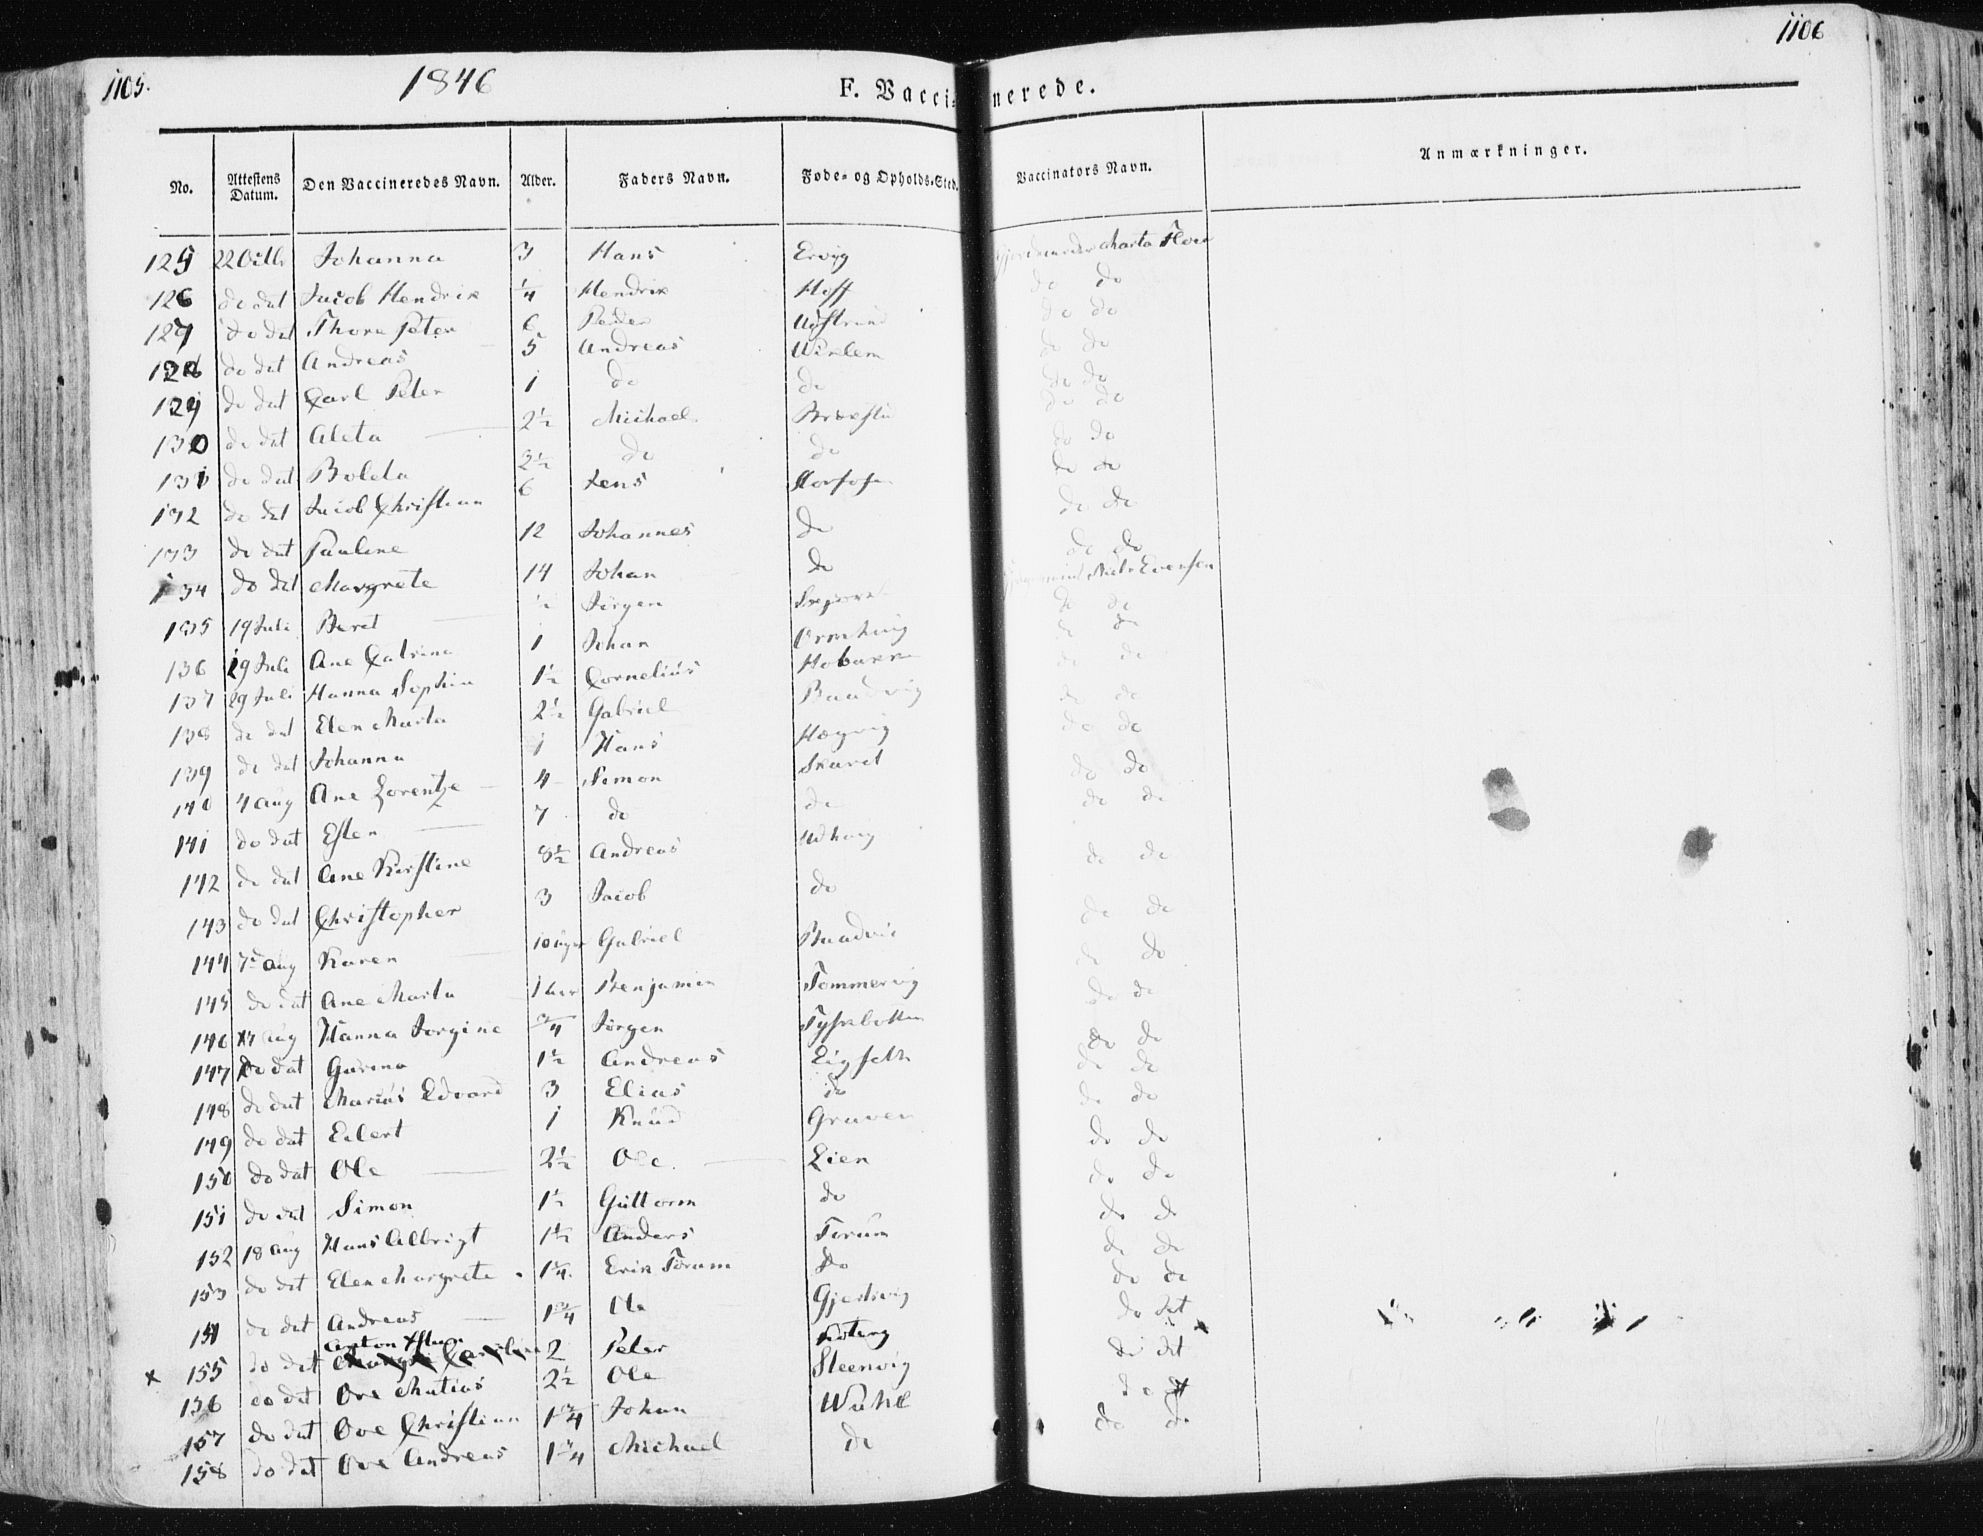 1105.
1846
F. Vaccinerede.
1106
No. Attestens Datum. Den Vaccineredes Navn. Alder. Faders Navn. Føde- og Opholds-Sted. Vaccinators Navn. Anmærkninger.
125 22 Octb Johanna 3 Hans Ervig Marta Floer
126 do dat Jacob Hendrik 1/4 Hendrik Hoff do do
127 do dat Thore Peter 6 Peder do do
128 do dat Andreas 5 Andreas do do
129 do dat Carl Peter 1 do do do do
130 do dat Aleta 2 1/2 Michael do do
131 do dat Boleta 2 1/2 do do do do
132 do dat Jacob Christian 6 Jens do do
133 do dat Pauline 12 Johannes do do do
134 do dat Margrete 14 Johan do do do
135 19 Juli Beret 1/2 Jørgen Niels Evensen
136 29 Juli Ane Catrina 1 Johan do do
137 29 Juli Hanna Sophia 1 1/2 Cornelius do do
138 do dat Elen Marta 2 1/2 Gabriel Baadvig do do
139 do dat Johanna 1 Hans Hægvig do do
140 4 Aug Ane Lorentze 4 Simon Skaret do do
141 do dat Esten 7 do do do do
142 do dat Ane Kirstine 8 1/2 Andreas Udhaug do do
143 do dat Christopher 3 Jacob do do do
144 7de Aug Karen 10 uger Gabriel Baadvic do do
145 do dat Ane Marta 1 aar Benjamin Tømmervig do do
146 Aug Hanna Jorgine 3/4 Jørgen Tyskbotten do do
147 do dat Gurina 1 1/2 Andreas do do
148 do dat Marius Edvard 3 Elias do do do
149 do dat Eilert 1 Knud Graven do do
150 do dat Ole 2 1/2 Ole Lien do do
151 do dat Simon 1 1/2 Guttorm do do do
152 18 Aug Hans Albrigt 1 1/2 Anders Forum do do
153 do dat Elen Margrete 1 1/4 Erik Forum do do do
154 do dat Andreas 1 3/4 Ole do dat
Anton
x 155 do dat 2 Peter do dat
156 do dat Ove Matias 2 1/2 Ole Steenvig do
157 do dat Ove Christian 1 3/4 Johan Wuhl do do
158 do dat Ove Andreas 1 3/4 Michael do